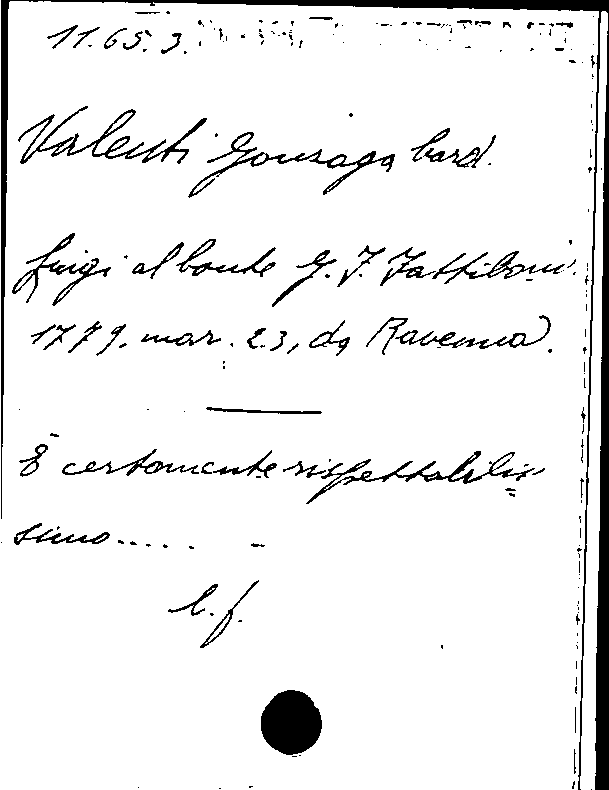 11.65.3.
Valenti Gonzaga Card.
Luigi al Conte G. F. Fattiboni.
1779. mar. 23, da Ravenna.
È certamente rispettabilis=
simo.....
l. f.